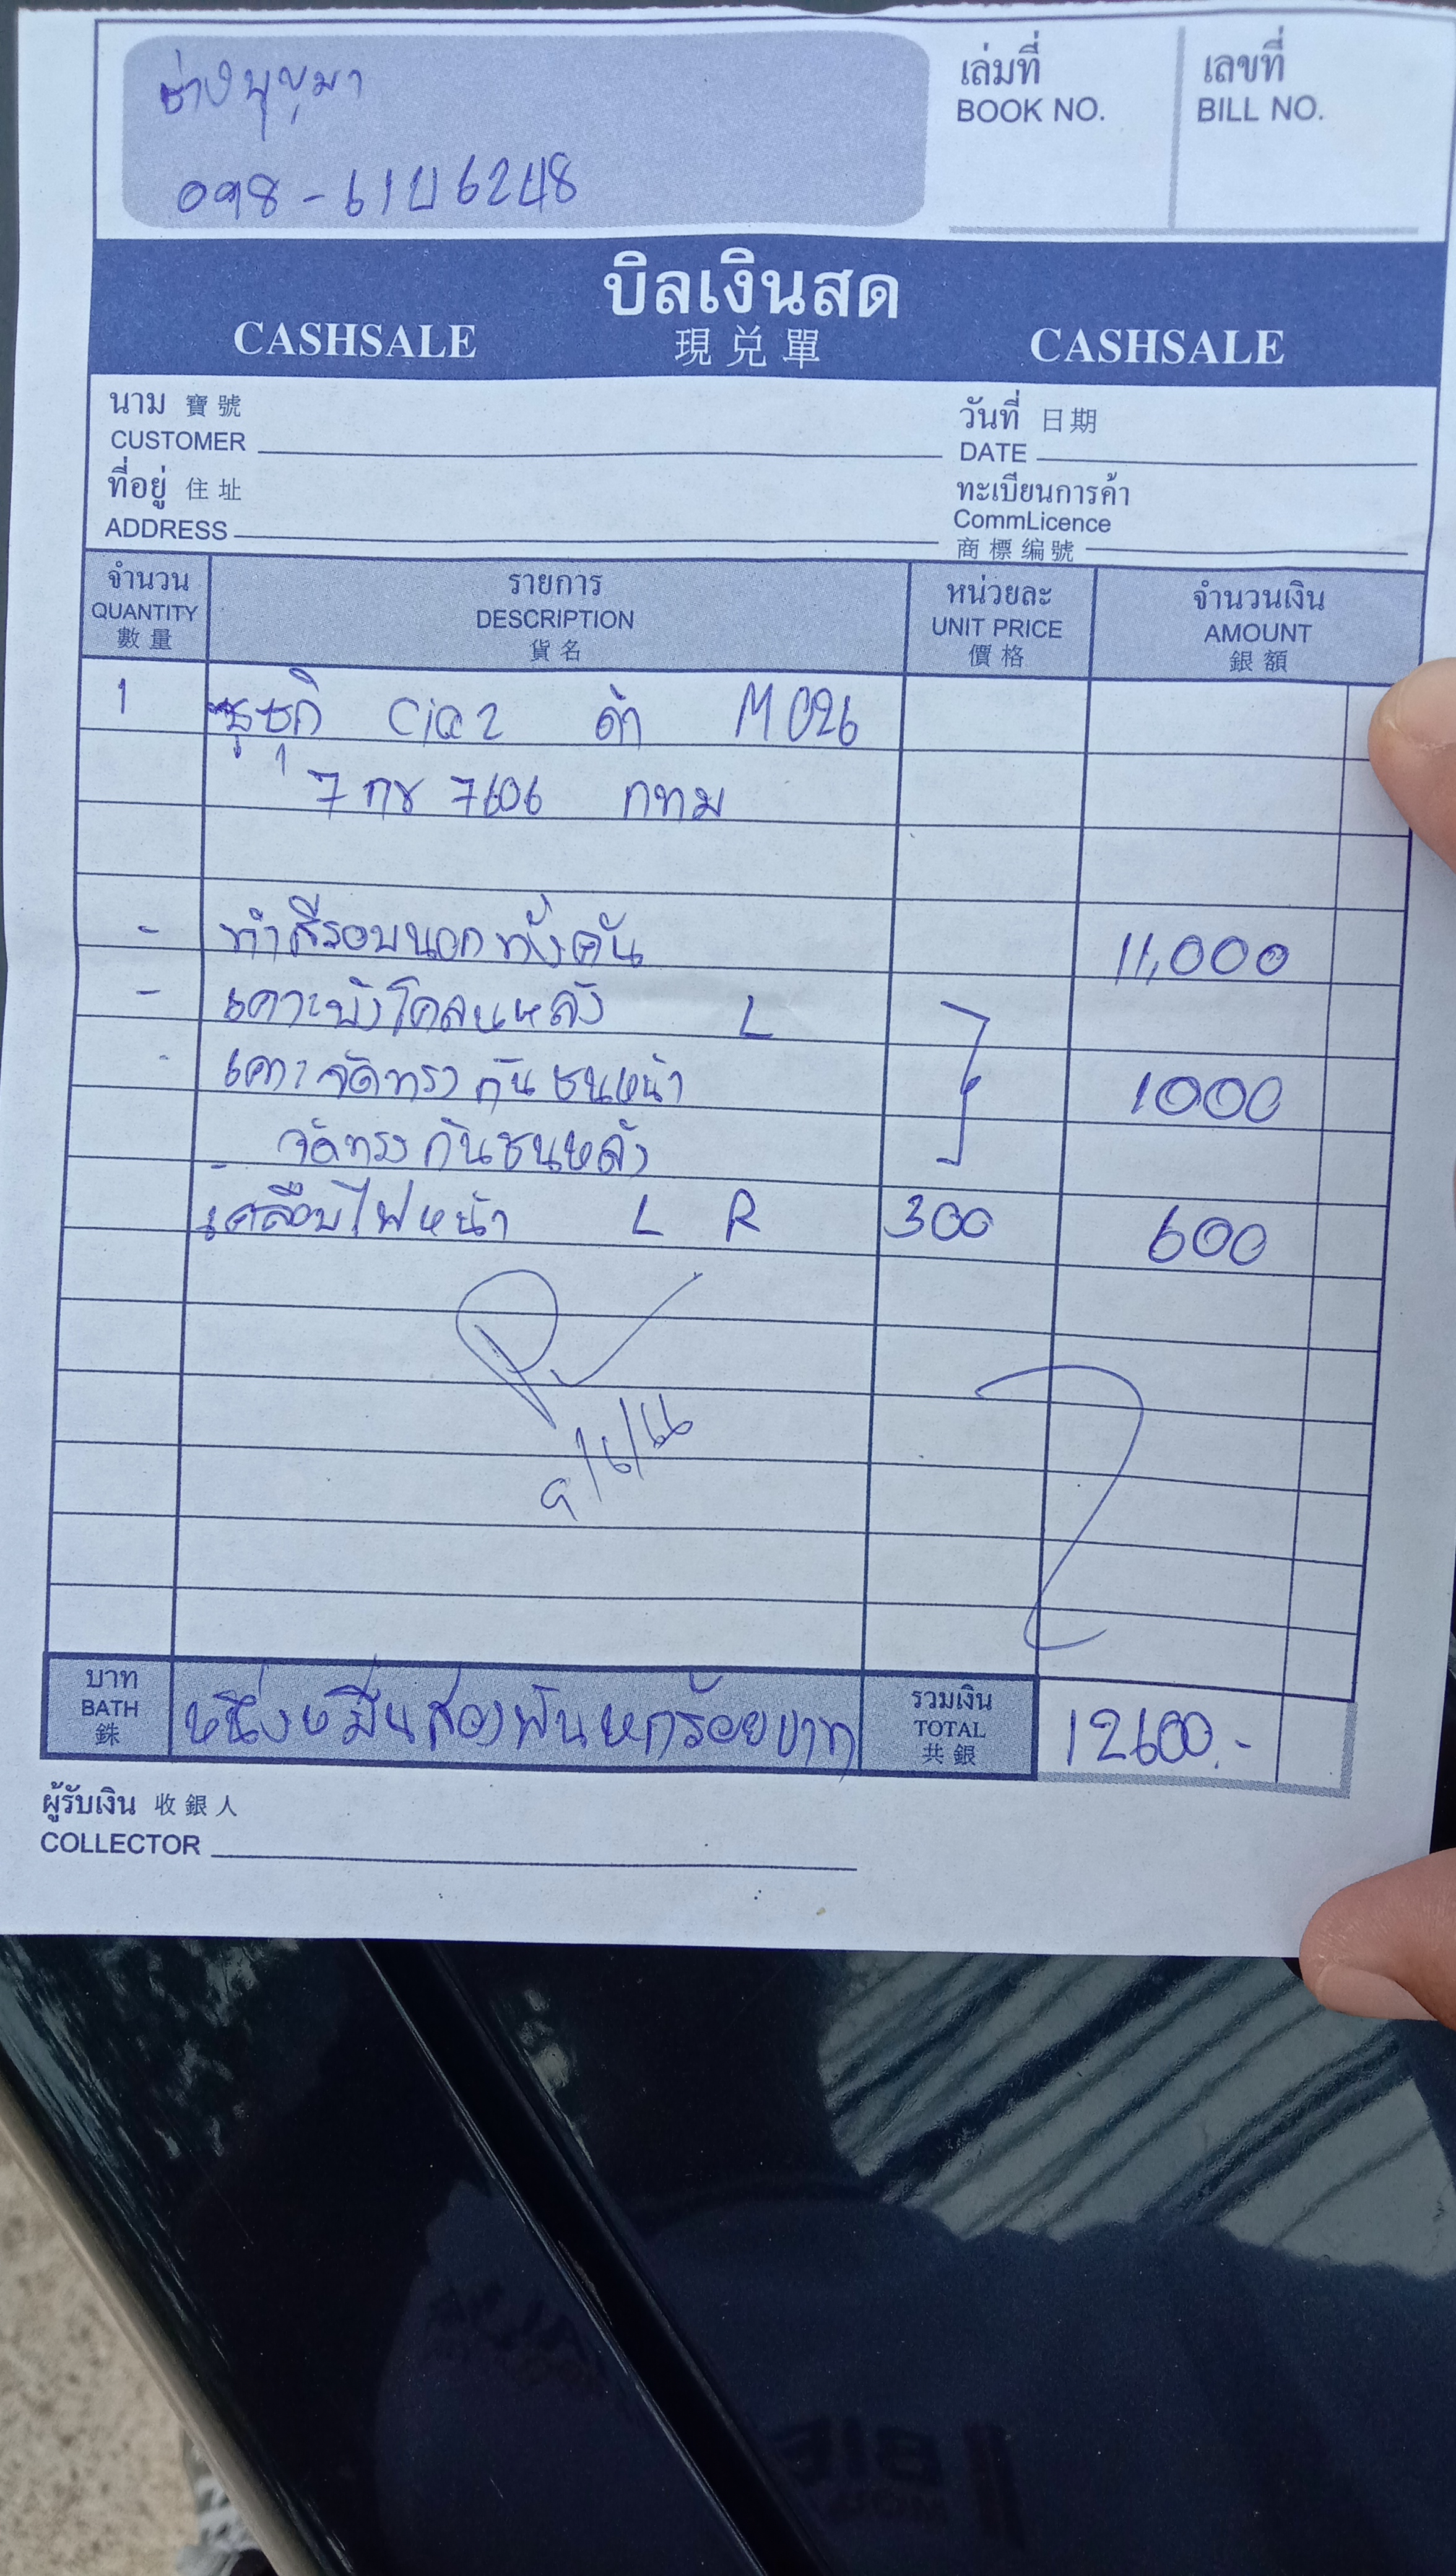 ช่างบุญมา
098-6146248
เล่มที่
BOOK NO.
เลขที่
BILL NO.
บิลเงินสด
CASHSALE 現兑單 CASHSALE
นาม 寶號
CUSTOMER
วันที่ 日期
DATE
ที่อยู่ 住址
ADDRESS
ทะเบียนการค้า
CommLicence
商標编號
จำนวน
QUANTITY
數量
รายการ
DESCRIPTION
貨名
หน่วยละ
UNIT PRICE
價格
จำนวนเงิน
AMOUNT
銀額
1 ซูซุกิ Ciaz ดำ M026
7 กข 7606 กทม
- ทำสีรอบนอกทั้งคัน 11,000
- เคาะบังโคลนหลัง L
- เคาะจัดทรงกันชนหน้า 1000
จัดทรงกันชนหลัง
- เคลือบไฟหน้า L R 300 600
9/6/66
บาท
BATH
銖
หนึ่งหมื่นสองพันหกร้อยบาท
รวมเงิน
TOTAL
共銀
12600.-
ผู้รับเงิน 收銀人
COLLECTOR